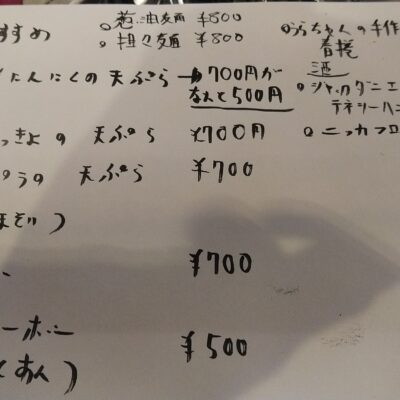 すすめ
○葱油麺 ¥800
○担々麺 ¥800
にんにくの天ぷら→700円が
なんと500円
っきょの天ぷら ¥700円
の天ぷら ¥700
)
¥700
ーボー
¥500
)
○うらちゃんの手作
春捲
酒
○ジャックダニエ
テネシーハニ
○ニッカフロ